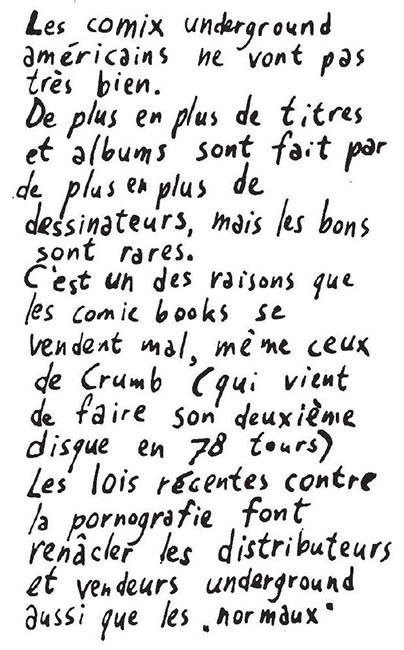 Les comix underground
américains ne vont pas
très bien.
De plus en plus de titres
et albums sont fait par
de plus en plus de
dessinateurs, mais les bons
sont rares.
C'est un des raisons que
les comic books se
vendent mal, même ceux
de Crumb (qui vient
de faire son deuxième
disque en 78 tours)
Les lois récentes contre
la pornografie font
renâcler les distributeurs
et vendeurs underground
aussi que les „normaux"